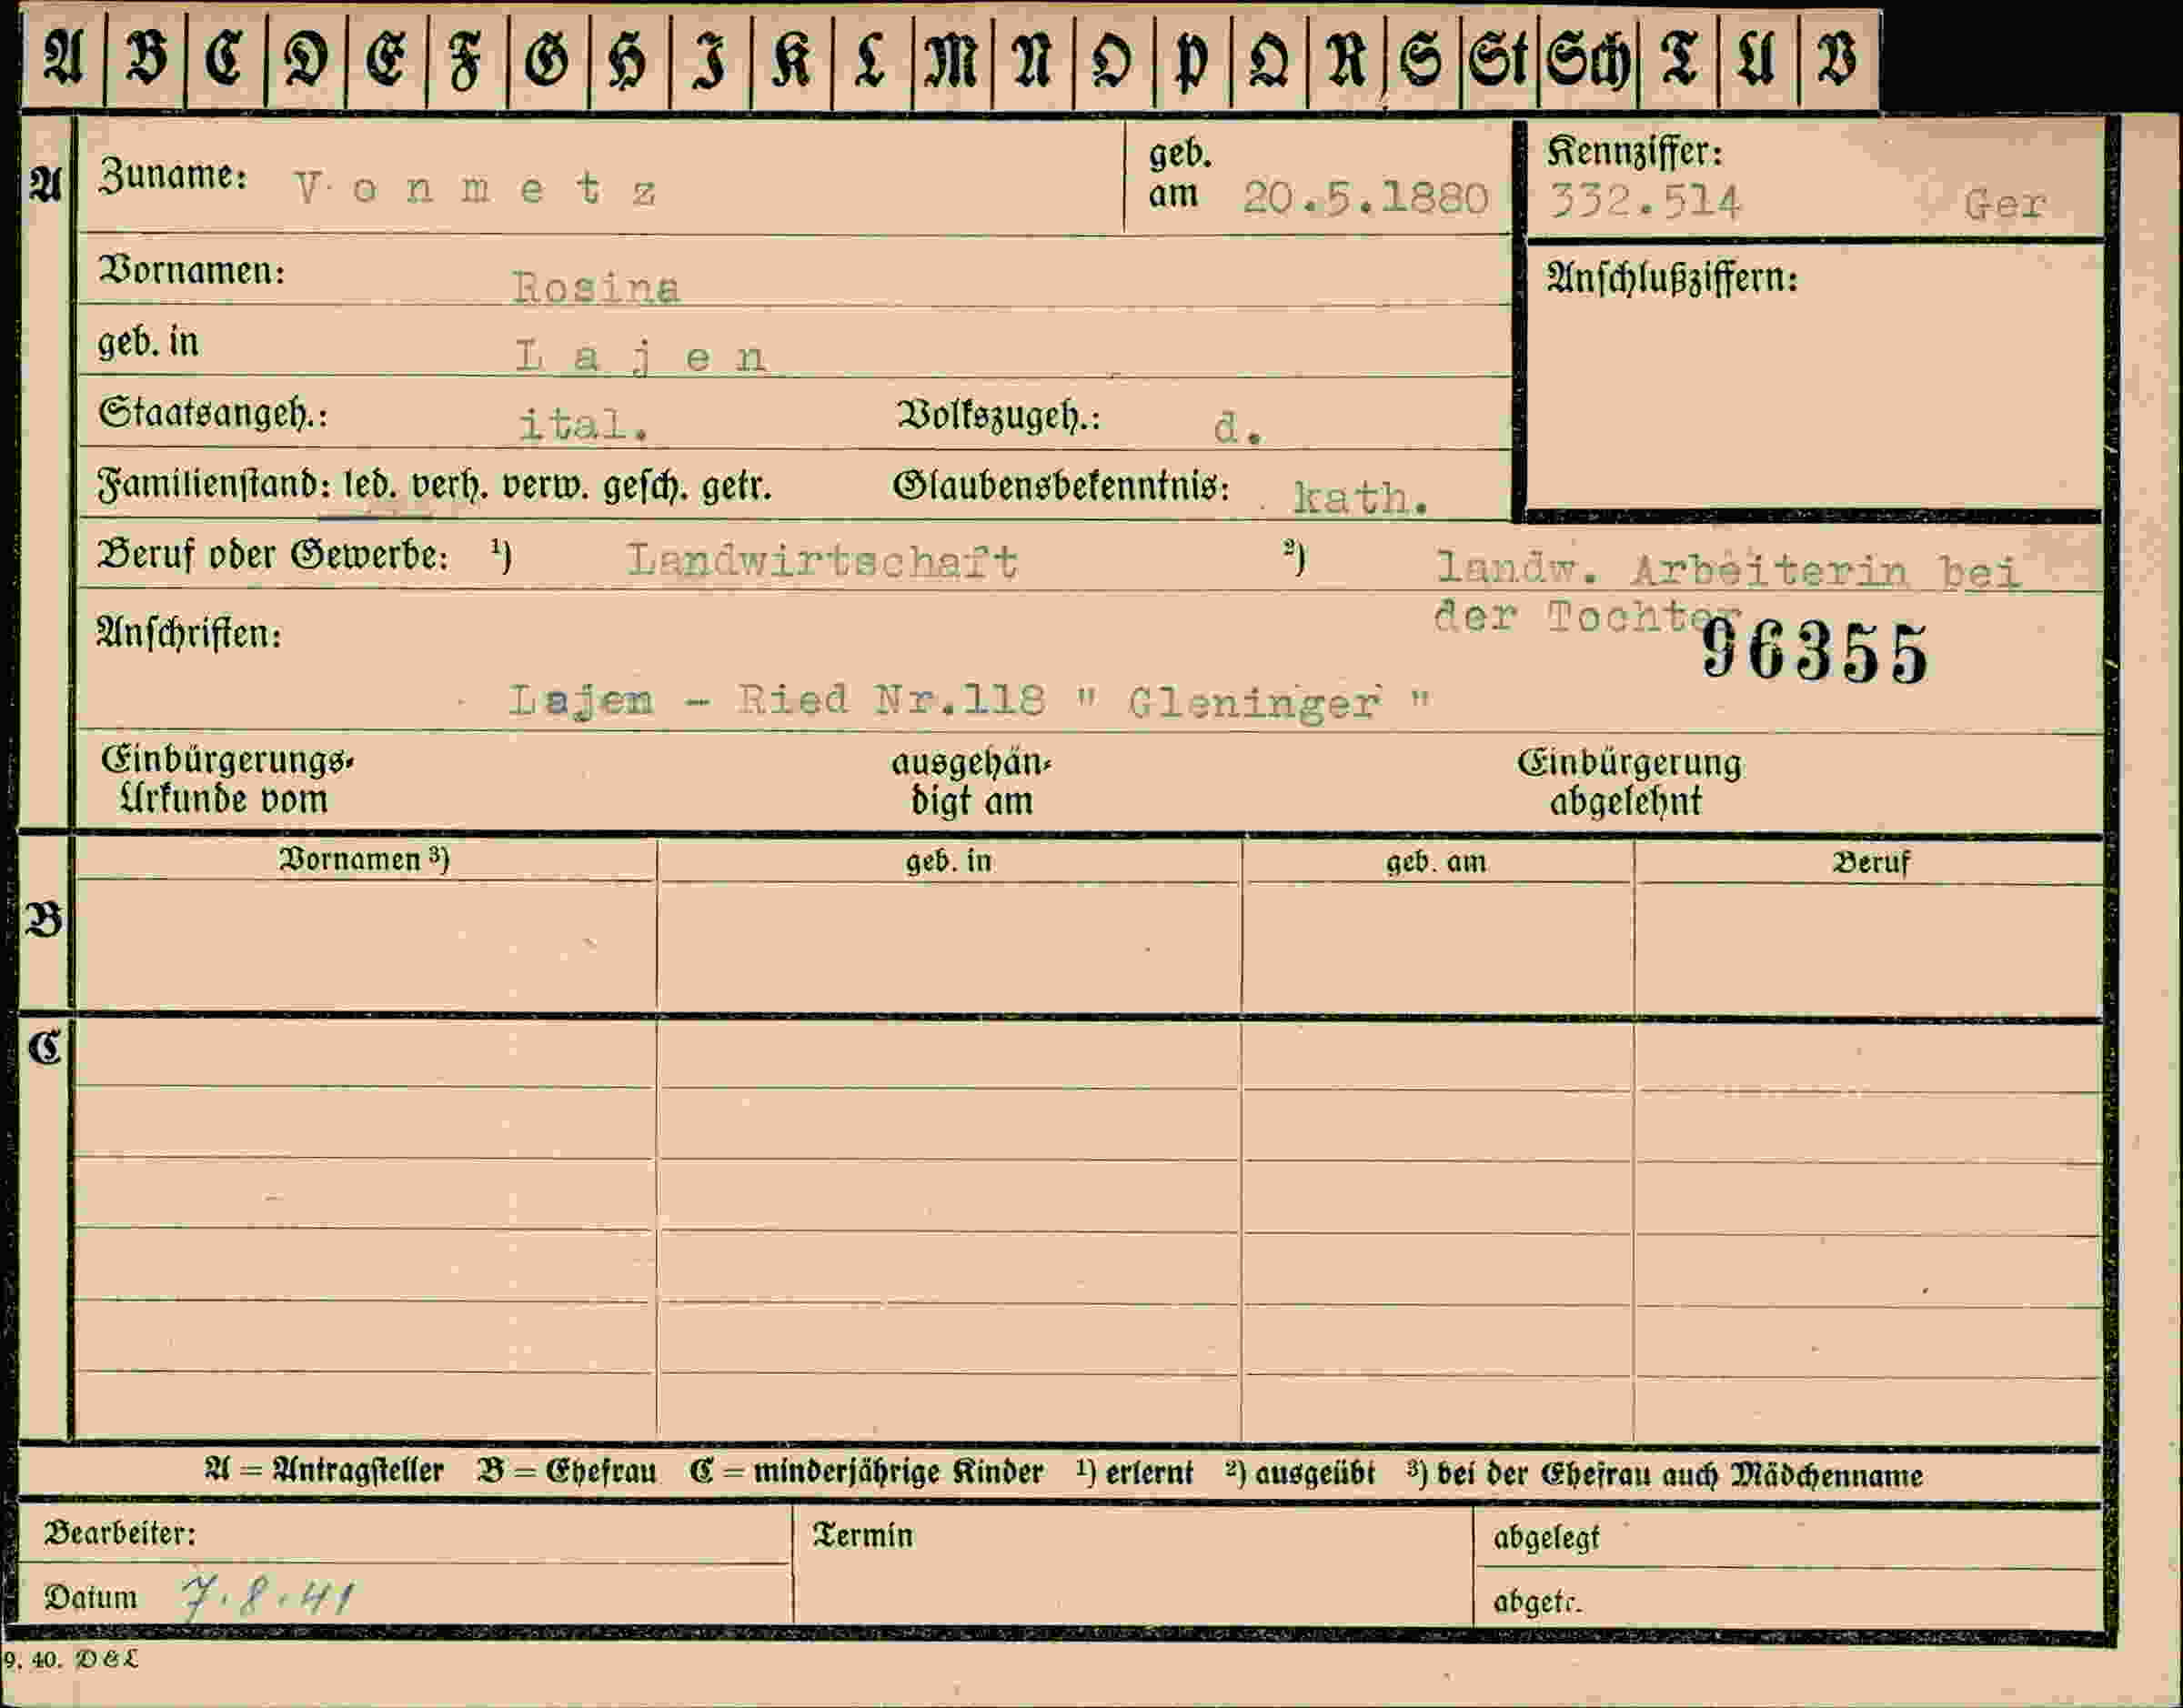 A B C D E F G H I K L M N O P Q R S St Sch T U V
A Zuname: Vonmetz geb. am 20.5.1880 Kennziffer: 332.514 Ger
Vornamen: Rosina Anschlußziffern:
geb. in Lajen
Staatsangeh.: ital. Volkszugeh.: d.
Familienstand: led. verh. verw. gesch. getr. Glaubensbekenntnis: kath.
Beruf oder Gewerbe: 1) Landwirtschaft 2) landw. Arbeiterin bei
der Tochter
Anschriften: 96355
Lajen - Ried Nr.118 " Gleninger "
Einbürgerungs- ausgehän- Einbürgerung
Urkunde vom digt am abgelehnt
Vornamen 3) geb. in geb. am Beruf
B
C
A = Antragsteller B = Ehefrau C = minderjährige Kinder 1) erlernt 2) ausgeübt 3) bei der Ehefrau auch Mädchenname
Bearbeiter: Termin abgelegt
Datum 7.8.41 abgetr.
9. 40. D&L